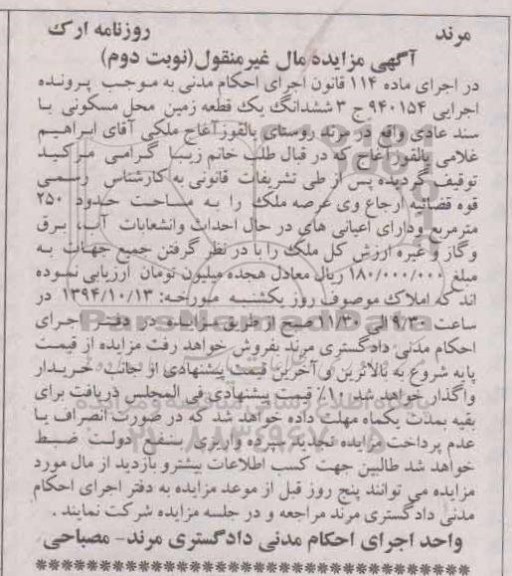 مرند روزنامه ارک
آگهی مزایده مال غیرمنقول(نوبت دوم)
در اجرای ماده ۱۱۴ قانون اجرای احکام مدنی به موجب پرونده
اجرایی ۹۴۰۱۵۴ ج ۳ ششدانگ یک قطعه زمین محل مسکونی با
سند عادی واقع در مرند روستای یالقوز آغاج ملکی آقای ابراهیم
غلامی یالقوز اغاج که در قبال طلب خانم زیبا گرامی مرکید
توقیف گردیده پس از طی تشریفات قانونی به کارشناس رسمی
قوه قضائیه ارجاع وی عرصه ملک را به مساحت حدود ۲۵۰
مترمربع ودارای اعیانی های در حال احداث وانشعابات آب، برق
وگاز و غیره ارزش کل ملک را با در نظر گرفتن جمیع جهات به
مبلغ ۱۸۰/۰۰۰/۰۰۰ ریال معادل هجده میلیون تومان ارزیابی نموده
اند که املاک موصوف روز یکشنبه مورخه: ۱۳۹۴/۱۰/۱۳ در
ساعت ۹/۳۰ الی ۱۱/۳۰ صبح از طریق مزایده در دفتر اجرای
احکام مدنی دادگستری مرند بفروش خواهد رفت مزایده از قیمت
پایه شروع به بالاترین و آخرین قیمت پیشنهادی از جانب خریدار
واگذار خواهد شد ۱۰٪ قیمت پیشنهادی فی المجلس دریافت برای
بقیه بمدت یکماه مهلت داده خواهد شد که در صورت انصراف یا
عدم پرداخت مزایده تجدید سپرده واریزی بنفع دولت ضبط
خواهد شد طالبین جهت کسب اطلاعات بیشترو بازدید از مال مورد
مزایده می توانند پنج روز قبل از موعد مزایده به دفتر اجرای احکام
مدنی دادگستری مرند مراجعه و در جلسه مزایده شرکت نمایند .
واحد اجرای احکام مدنی دادگستری مرند- مصباحی
ParsNamadData